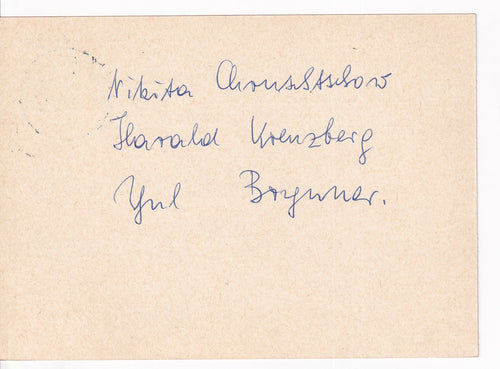 Nikita Chruschtschow
Harald Kreuzberg
Yul Brynner.